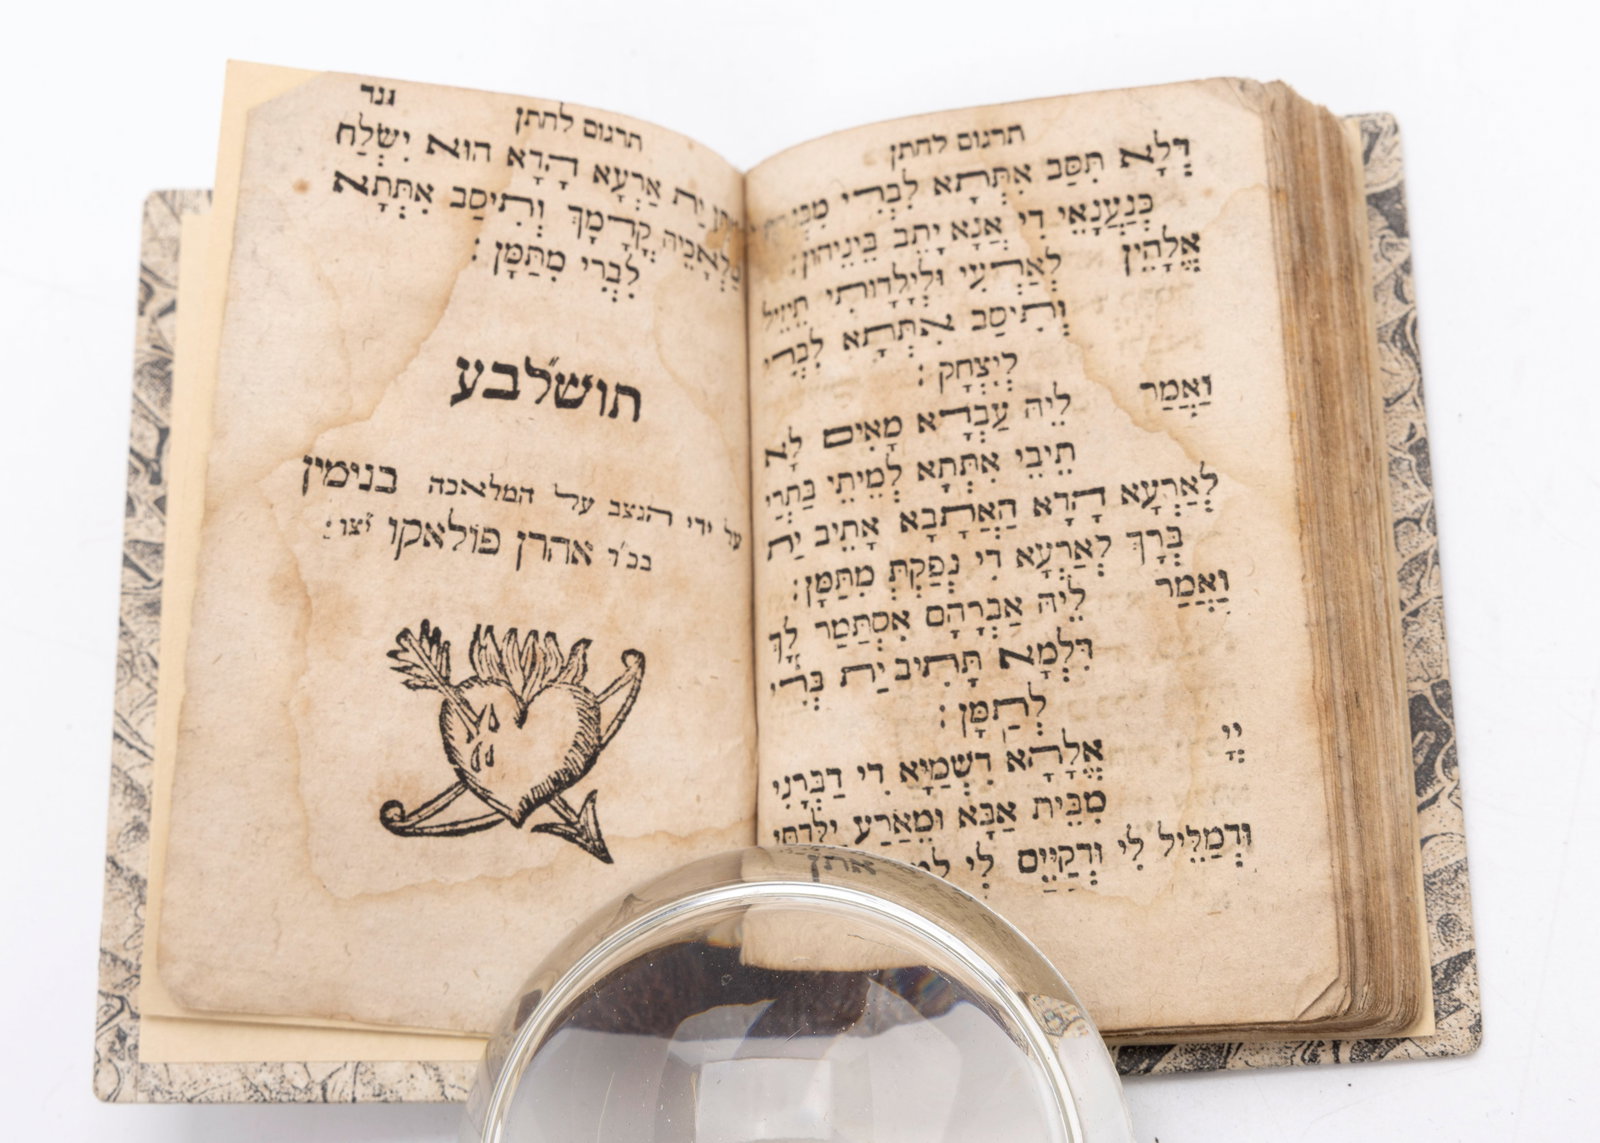 תרגום לחתן
דְּלָא תִּסַּב אִתְּתָא לִבְרִי
כְּנַעֲנָאֵי דִי אֲנָא יָתֵב בֵּינֵיהוֹן:
אֱלָהֵין לְאַרְעִי וּלְיַלָּדוּתִי תֵּיזֵיל
וְתִיסַב אִתְּתָא לִבְרִי
לְיִצְחָק:
וַאֲמַר לֵיהּ עַבְדָא מָאִים לָא
תֵיבֵי אִתְּתָא לְמֵיתֵי בַּתְרַי
לְאַרְעָא הָדָא הַאֲתָבָא אָתֵיב יַת
בְּרָךְ לְאַרְעָא דִי נְפַקְתְּ מִתַּמָּן:
וַאֲמַר לֵיהּ אַבְרָהָם אִסְתַּמַּר לָךְ
דִּלְמָא תָּתִיב יַת בְּרִי
לְתַמָּן:
יְיָ אֱלָהָא דִשְׁמַיָּא דִי דַבְּרָנִי
מִבֵּית אַבָּא וּמֵאֲרַע יַלָּדתִּי
וּדְמַלֵּיל לִי וּדְקַיֵּים לִי
תרגום לחתן גגד
יָת אַרְעָא הָדָא הוּא יִשְׁלַח
מַלְאָכֵיהּ קֳדָמָךְ וְתִיסַב אִתְּתָא
לִבְרִי מִתַּמָּן:
תושל״בע
על ידי הנצב על המלאכה בנימין
בכ״ר אהרן פולאקו יצו׃